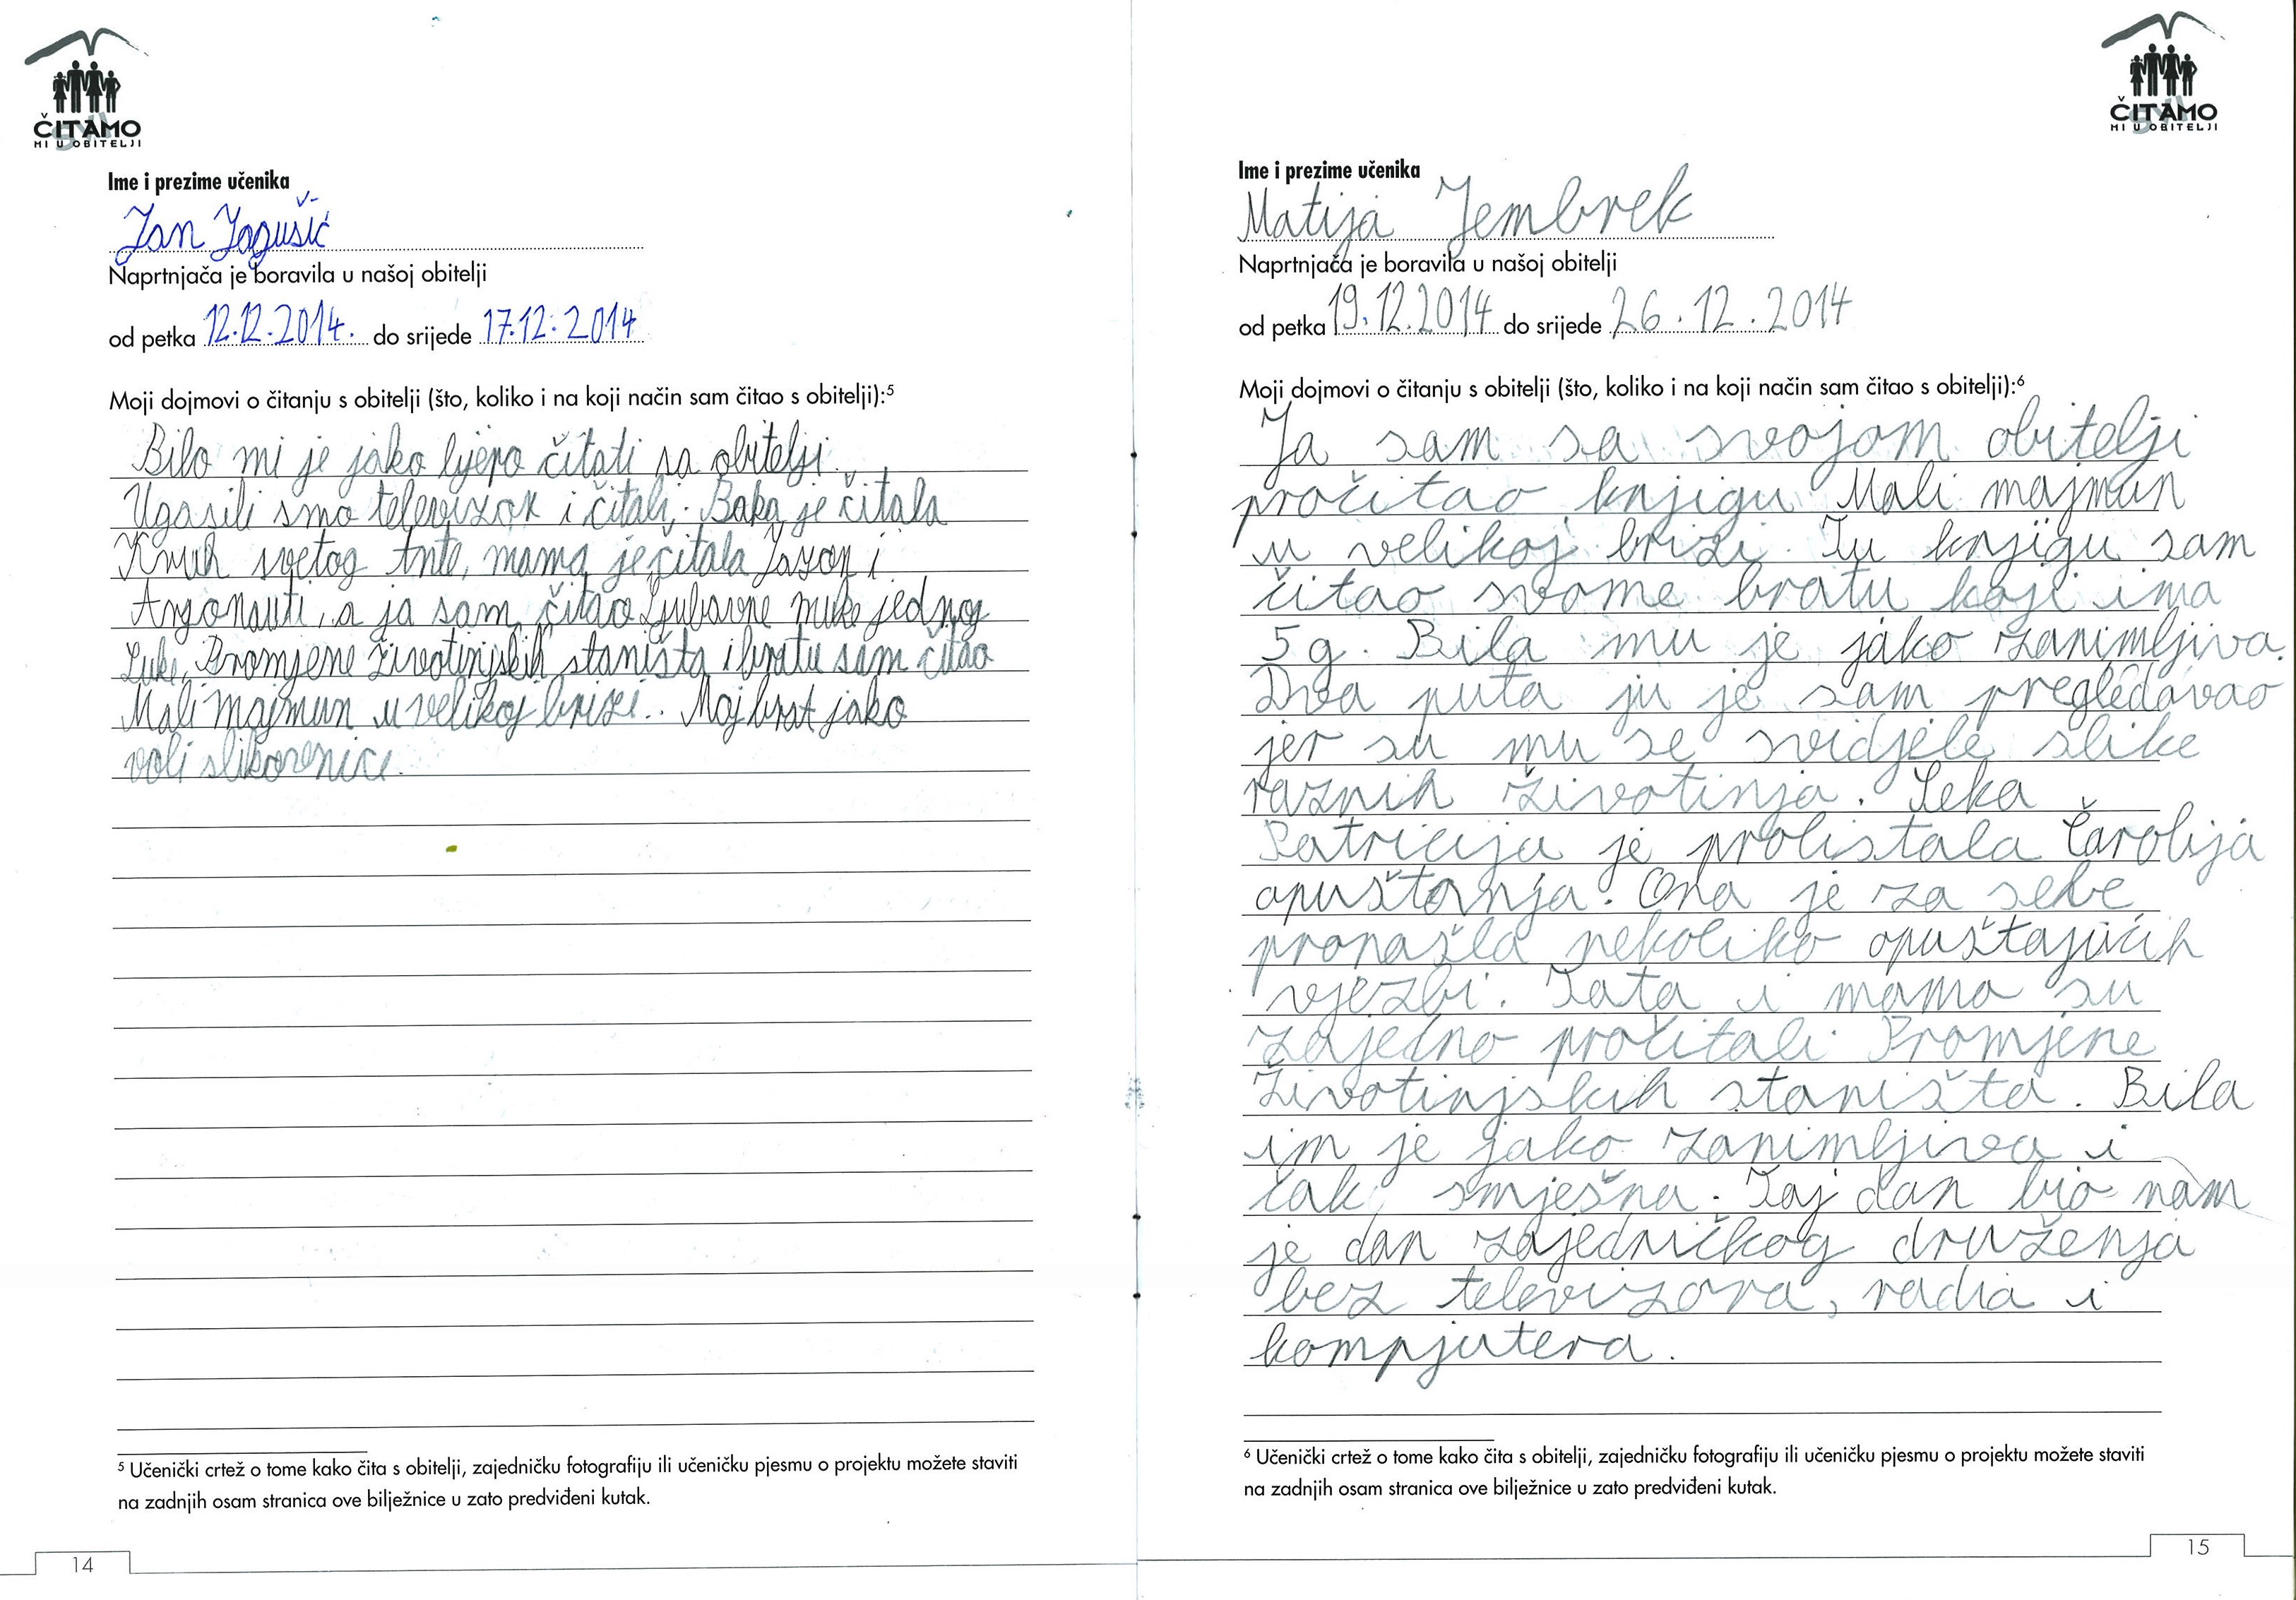 ČITAMO
MI U OBITELJI
Ime i prezime učenika
Jan Jagušić
Naprtnjača je boravila u našoj obitelji
od petka 12.12.2014. do srijede 17.12.2014
Moji dojmovi o čitanju s obitelji (što, koliko i na koji način sam čitao s obitelji):⁵
Bilo mi je jako lijepo čitati sa obitelji.
Ugasili smo televizor i čitali. Baka je čitala
Kruh svetog Ante, mama je čitala Jazon i
Argonauti, a ja sam čitao Ljubavne muke jednog
Luke, Promjene životinjskih staništa i bratu sam čitao
Mali majmun u velikoj brizi. Moj brat jako
voli slikovnice.
⁵ Učenički crtež o tome kako čita s obitelji, zajedničku fotografiju ili učeničku pjesmu o projektu možete staviti
na zadnjih osam stranica ove bilježnice u zato predviđeni kutak.
14
ČITAMO
MI U OBITELJI
Ime i prezime učenika
Matija Jembrek
Naprtnjača je boravila u našoj obitelji
od petka 19.12.2014 do srijede 26.12.2014
Moji dojmovi o čitanju s obitelji (što, koliko i na koji način sam čitao s obitelji):⁶
Ja sam sa svojom obitelji
pročitao knjigu Mali majmun
u velikoj brizi. Tu knjigu sam
čitao svome bratu koji ima
5 g. Bila mu je jako zanimljiva.
Dva puta ju je sam pregledavao
jer su mu se svidjele slike
raznih životinja. Seka
Patricija je prolistala Čarolija
opuštanja. Ona je za sebe
pronašla nekoliko opuštajućih
vježbi. Tata i mama su
zajedno pročitali Promjene
životinjskih staništa. Bila
im je jako zanimljiva i
čak smješna. Taj dan bio nam
je dan zajedničkog druženja
bez televizora, radia i
kompjutera.
⁶ Učenički crtež o tome kako čita s obitelji, zajedničku fotografiju ili učeničku pjesmu o projektu možete staviti
na zadnjih osam stranica ove bilježnice u zato predviđeni kutak.
15